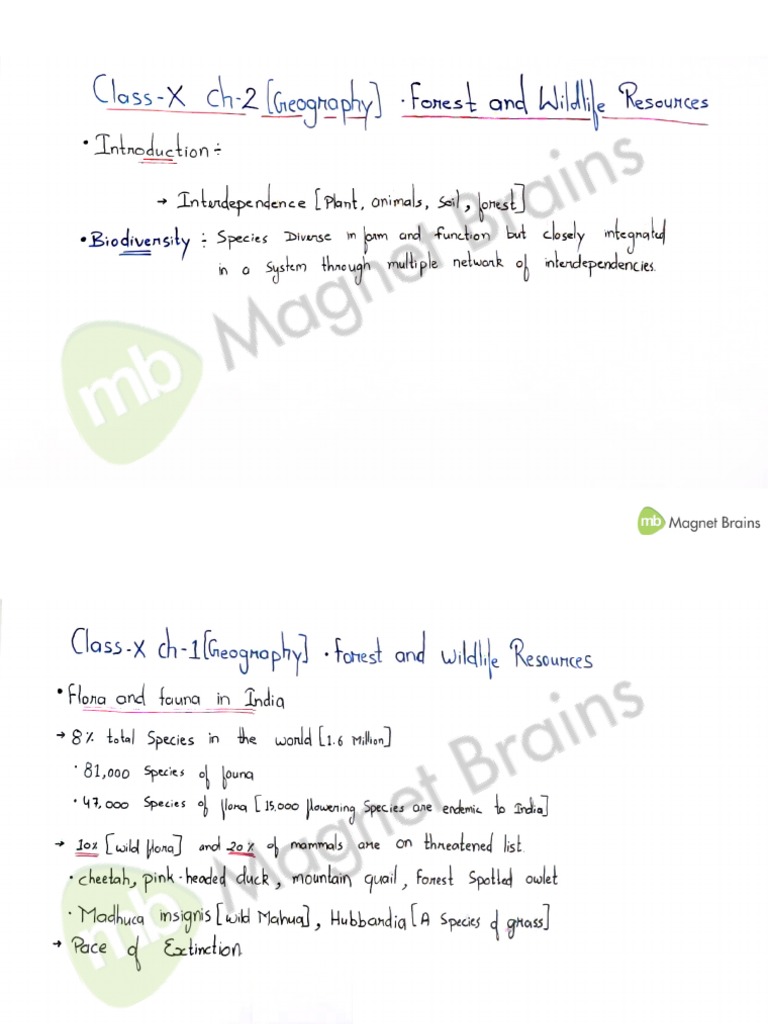 Class-X Ch-2 [Geography] · Forest and Wildlife Resources
• Introduction ÷
→ Interdependence [Plant, animals, Soil, forest]
• Biodiversity ÷ Species Diverse in form and function but closely integrated
in a System through multiple network of interdependencies.
mb Magnet Brains
mb Magnet Brains
Class-X Ch-1 [Geography] · Forest and Wildlife Resources
• Flora and fauna in India
→ 8% total Species in the world [1.6 Million]
· 81,000 Species of fauna
· 47,000 Species of flora [15,000 flowering Species are endemic to India]
→ 10% [wild flora] and 20% of mammals are on threatened list.
· cheetah, pink-headed duck, mountain quail, forest Spotted owlet
· Madhuca insignis [wild Mahua], Hubbardia [A Species of grass]
→ Pace of Extinction
mb Magnet Brains